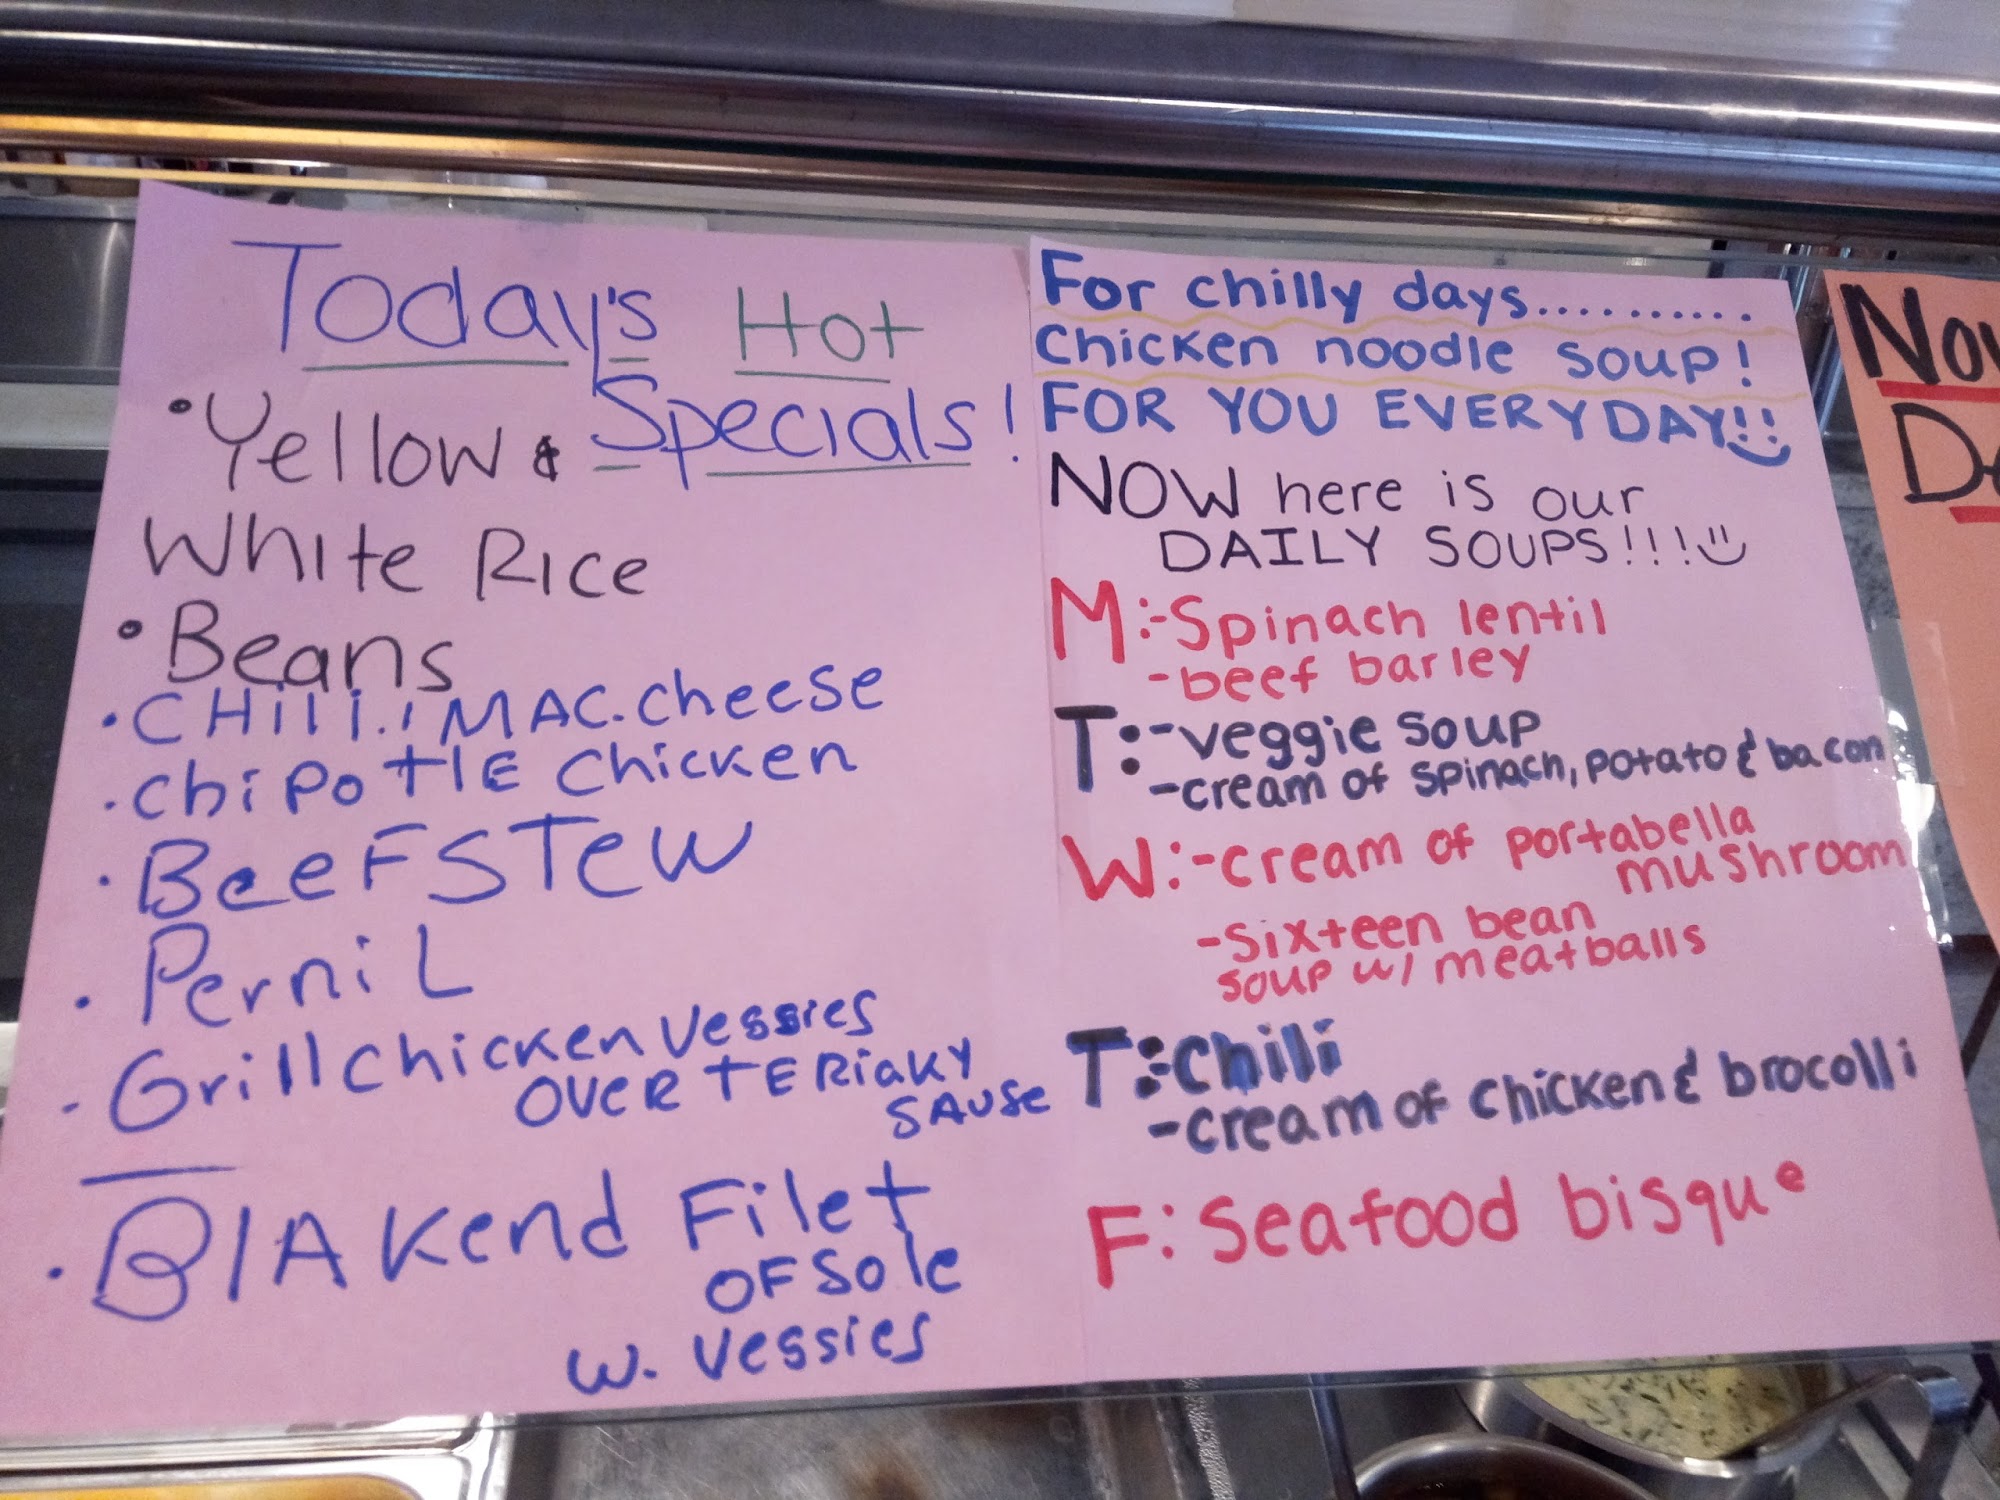 Today's Hot
Specials!
• Yellow &
White Rice
• Beans
• CHili./MAC.cheese
• chipotlE chicken
• BeeF STew
• PerniL
- Grill chicken Vessies
OVER TERiAKY
SAUSe
• BlAKend Filet
OF Sole
W. Vessies
For chilly days...........
Chicken noodle soup!
FOR YOU EVERYDAY!!
NOW here is our
DAILY SOUPS!!!
M:-Spinach lentil
-beef barley
T:-veggie soup
-cream of spinach, potato & bacon
W:-cream of portabella
mushroom
-sixteen bean
soup w/ meatballs
T:chili
-cream of chicken & brocolli
F: Seafood bisque